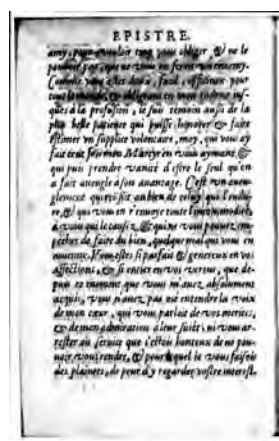 EPISTRE.
amy, pour vouloir trop vous obliger & ne le
pouvoir pas, que ne vous en feront vn ennemy.
Comme vous estes doux, facil, officieux pour
tout le monde, & obligeant en mon endroit jus-
ques à la profusion, ie suis témoin aussi de la
plus belle patience qui puisse honorer & faire
estimer vn supplice volontaire, moy, qui vous ay
fait estre souvent Martyr en vous aymant &
qui puis prendre vanité d'estre le seul qu'on
a fait aueugle à son auantage. C'est vn aueu-
glement qui reüssit au bien de celuy qui l'endu-
re, & qui vous en r'enuoye toute l'incommodité,
à vous qui le causez, & qui ne vous pouuez em-
pescher de faire du bien, quelque mal qui vous en
auienne. Vous estes si parfait & genereux en vos
affections, & si entier en vos vertus, que de-
puis ce moment que vous m'auez absolument
acquis, vous n'auez pas oüé entendre la voix
de mon cœur, qui vous parloit de vos merites,
& de mon admiration à leur suite; ni vous ar-
rester au seruice que i'estois honteux de ne pou-
uoir vous rendre, & pour lequel ie vous faisois
des plaintes, de peur d'y regarder vostre interest.